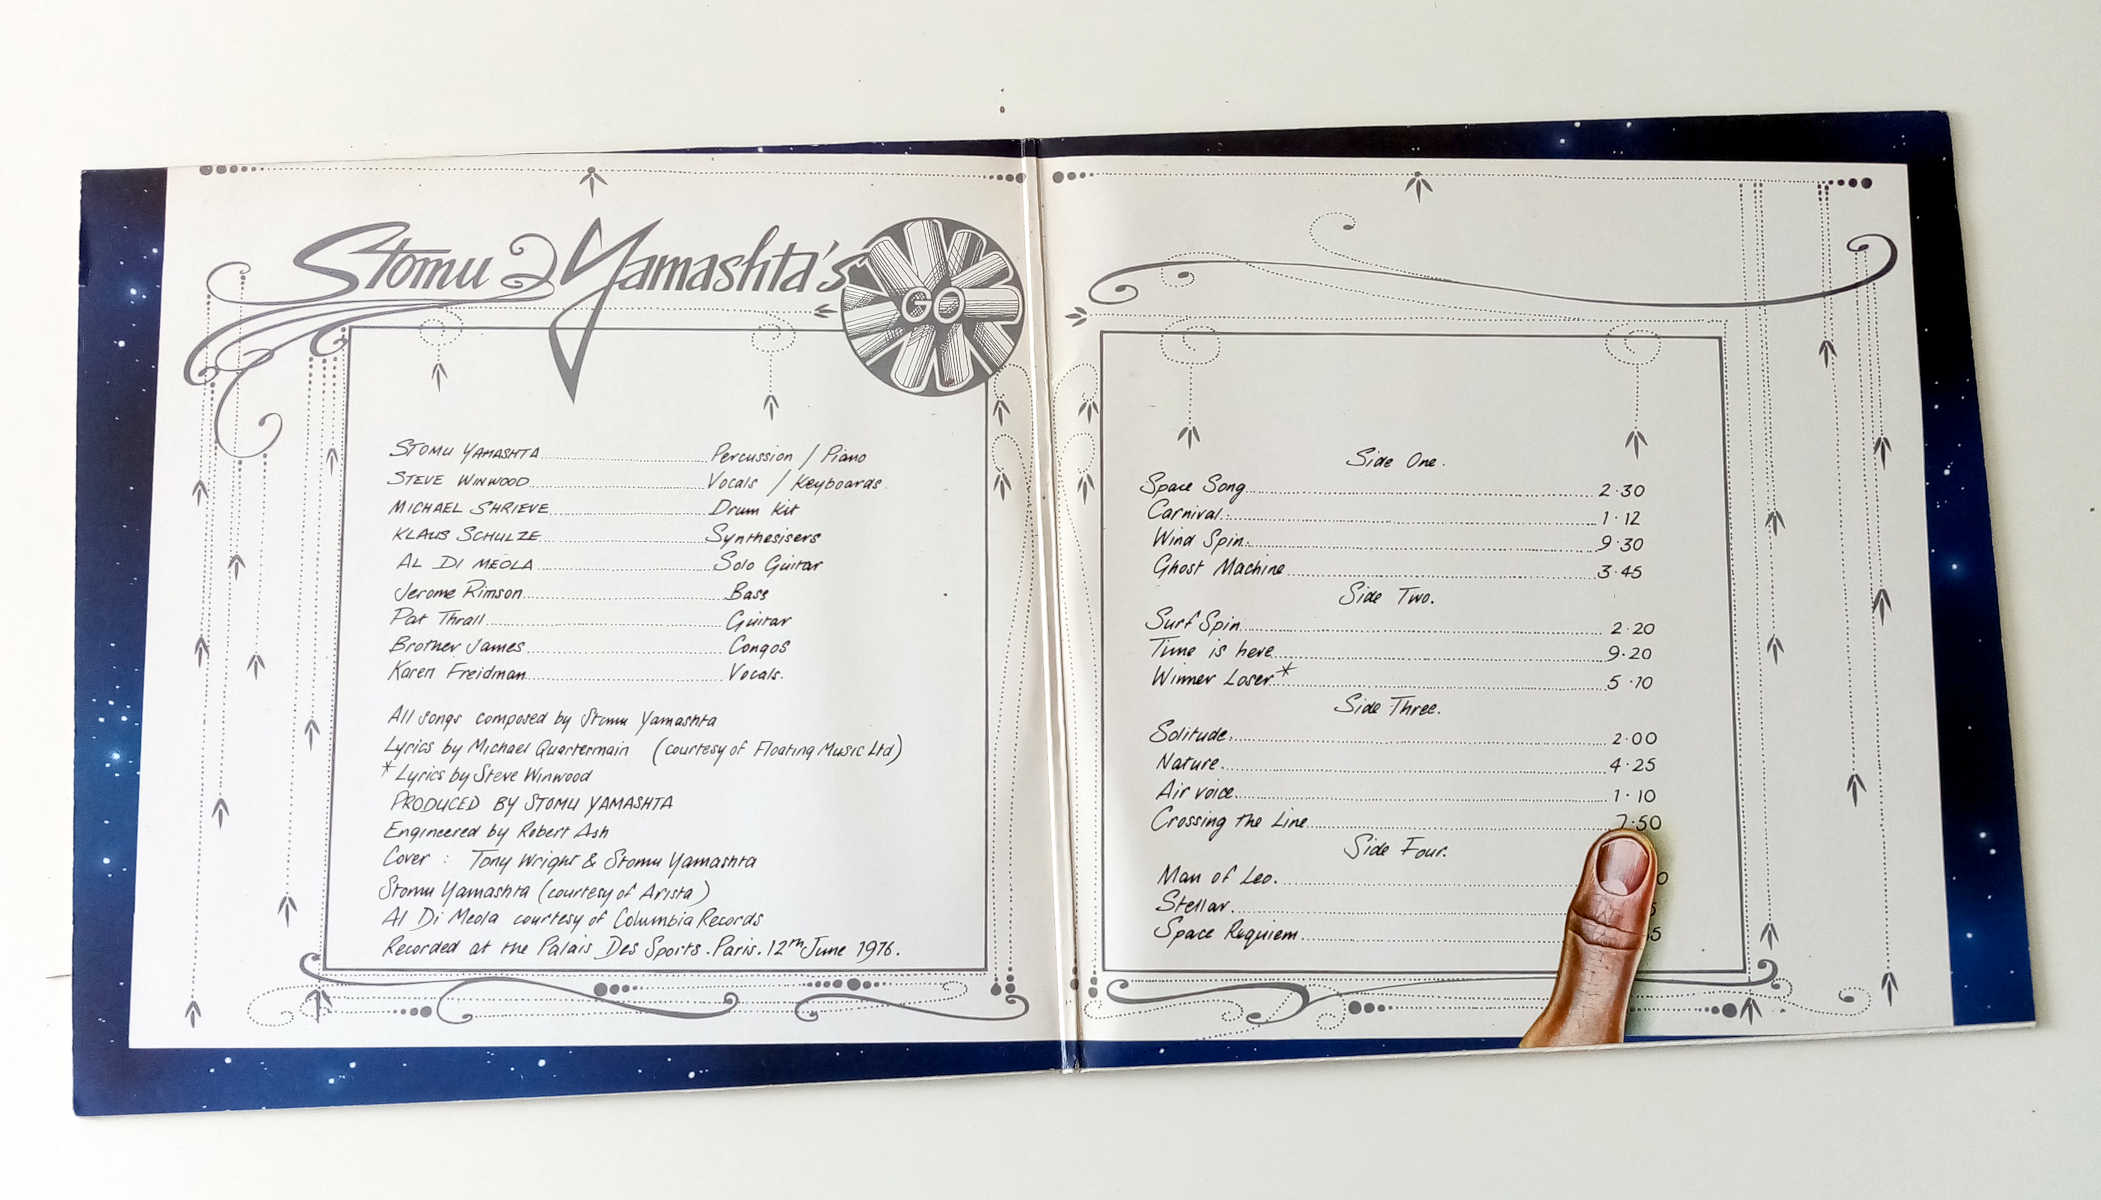 Stomu Yamashta's
GO
STOMU YAMASHTA Percussion / Piano
STEVE WINWOOD Vocals / Keyboards
MICHAEL SHRIEVE Drum Kit
KLAUS SCHULZE Synthesisers
AL DI MEOLA Solo Guitar
Jerome Rimson Bass
Pat Thrall Guitar
Brother James Congos
Karen Freidman Vocals.
All songs composed by Stomu Yamashta
Lyrics by Michael Quartermain (courtesy of Floating Music Ltd)
* Lyrics by Steve Winwood
PRODUCED BY STOMU YAMASHTA
Engineered by Robert Ash
Cover : Tony Wright & Stomu Yamashta
Stomu Yamashta (courtesy of Arista)
Al Di Meola courtesy of Columbia Records
Recorded at the Palais Des Sports. Paris. 12th June 1976.
Side One.
Space Song 2·30
Carnival 1·12
Wind Spin 9·30
Ghost Machine 3·45
Side Two.
Surf Spin 2·20
Time is here 9·20
Winner Loser* 5·10
Side Three.
Solitude 2·00
Nature 4·25
Air voice 1·10
Crossing the Line 7·50
Side Four.
Man of Leo.
Stellar
Space Requiem